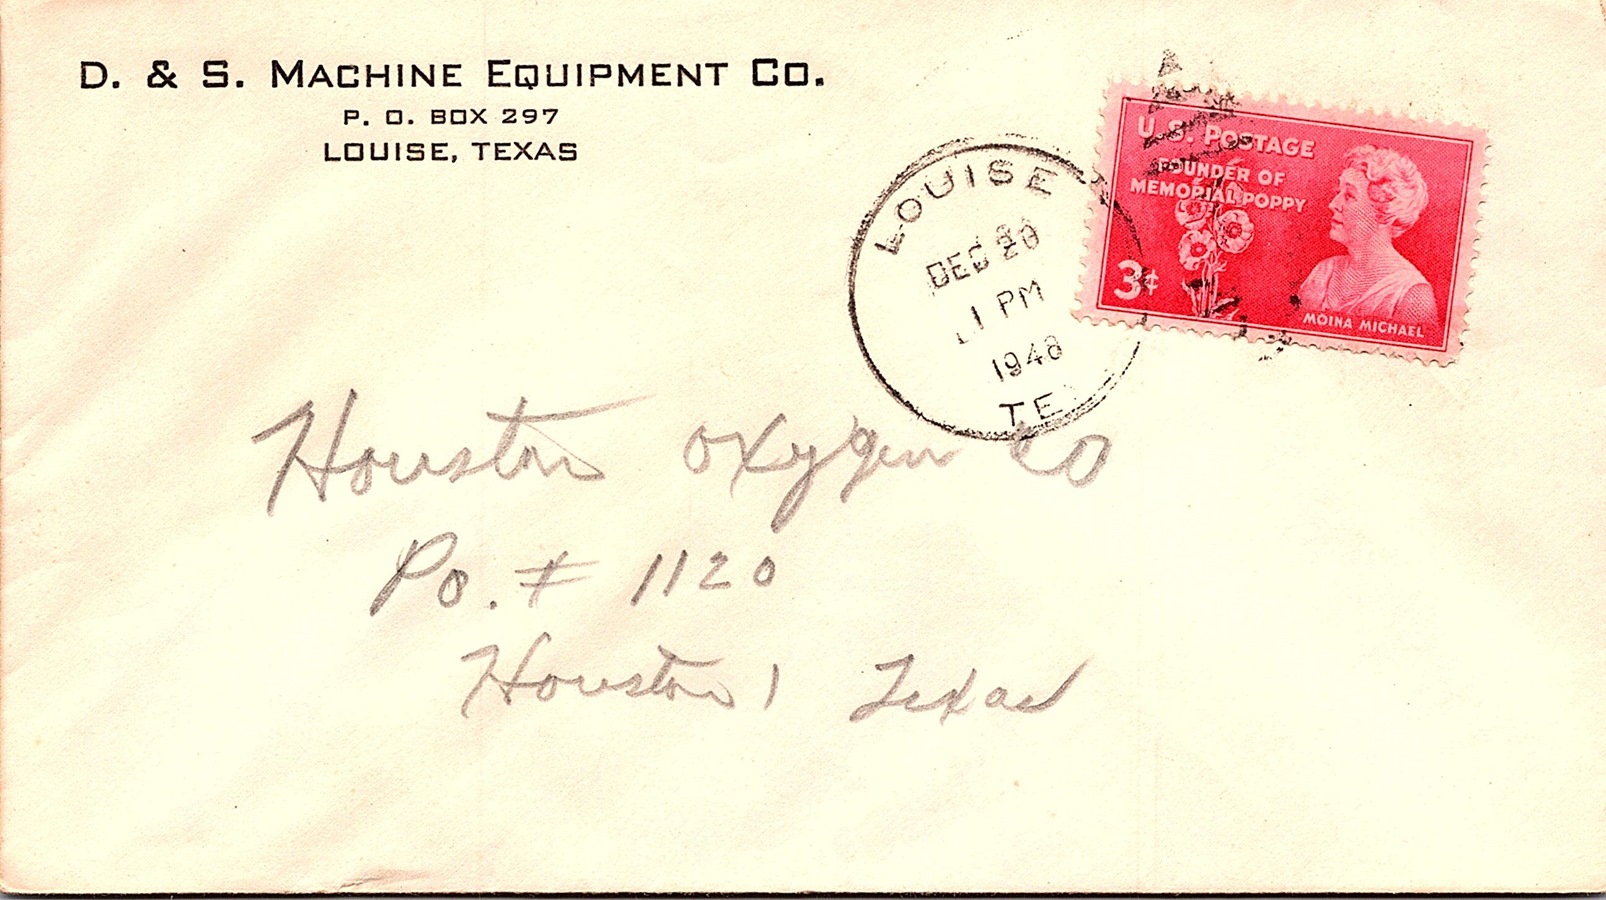 D. & S. MACHINE EQUIPMENT CO.
P. O. BOX 297
LOUISE, TEXAS
U. S. POSTAGE
FOUNDER OF
MEMORIAL POPPY
3¢
MOINA MICHAEL
LOUISE
DEC 20
1 PM
1948
TE
Houston Oxygen Co
Po. # 1120
Houston 1 Texas